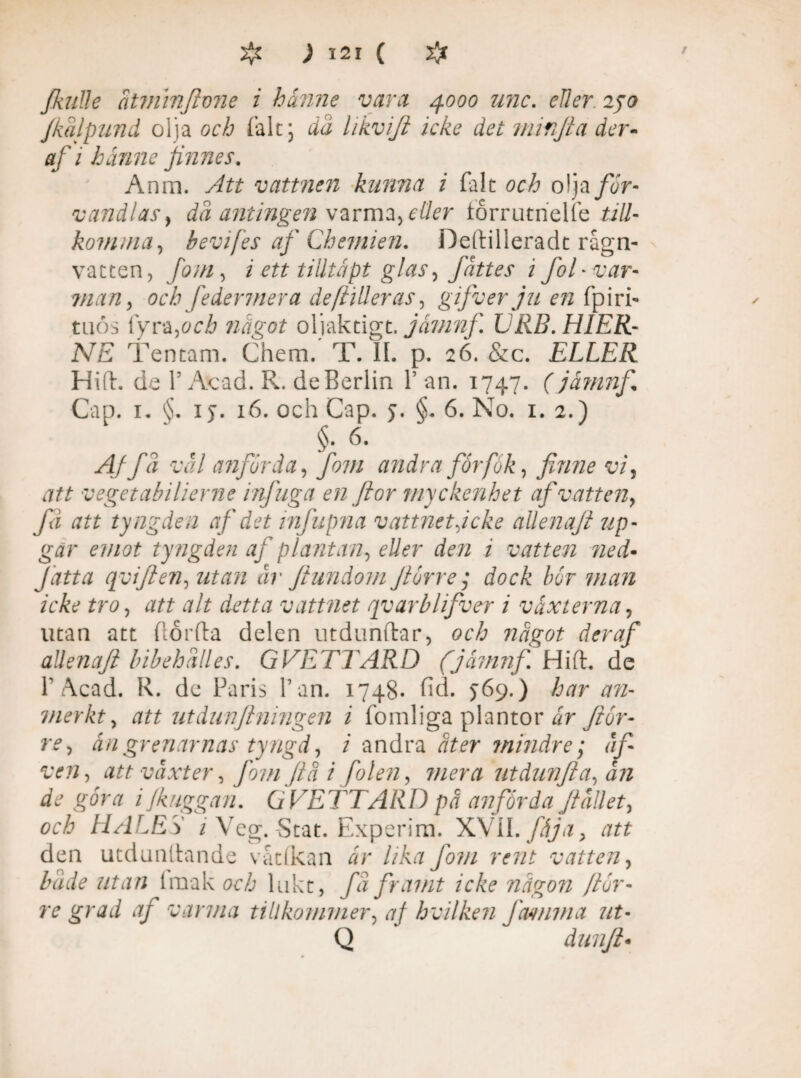 ☼ ) 121 ( ☼
ſkulle åtminſtone i hänne vara 4000 unc. eller. 250
ſkålpund olja och ſalt; då likviſt icke det minſta der-
af i hänne finnes.
Anm. Att vattnen kunna i ſalt och olja för-
vandlas, då antingen varma, eller förrutnelſe till-
komma, beviſes af Chemien. Deſtilleradt rägn-
vatten, ſom, i ett tilltäpt glas, ſättes i ſol-var-
man, och ſedermera deſtilleras, gifver ju en ſpiri-
tuös ſyra, och något oljaktigt. jämnf. URB. HIER-
NE Tentam. Chem. T. II. p. 26. &c. ELLER
Hiſt. de l' Acad. R. de Berlin l' an. 1747. (jämnf.
Cap. 1. §. 15. 16. och Cap. 5. §. 6. No. 1. 2.)
§. 6.
Af ſå väl anförda, ſom andra förſök, finne vi,
att vegetabilierne inſuga en ſtor myckenhet af vatten,
ſå att tyngden af det inſupna vattnet, icke allenaſt up-
går emot tyngden af plantan, eller den i vatten ned-
ſatta qviſten, utan är ſtundom ſtörre; dock bör man
icke tro, att alt detta vattnet qvarblifver i växterna,
utan att ſtörſta delen utdunſtar, och något deraf
allenaſt bibehålles. GVETTARD (jämnf. Hiſt. de
l' Acad. R. de Paris l' an. 1748. ſid. 569.) har an-
merkt, att utdunſtningen i ſomliga plantor är ſtör-
re, än grenarnas tyngd, i andra åter mindre; äf-
ven, att växter, ſom ſtå i ſolen, mera utdunſta, än
de göra i ſkuggan. GVETTARD på anförda ſtället,
och HALES i Veg. Stat. Experim. XVII. ſäja, att
den utdunſtande vätſkan är lika ſom rent vatten,
både utan ſmak och lukt, ſå framt icke någon ſtör-
re grad af varma tillkommer, af hvilken ſamma ut-
Q dunſt-